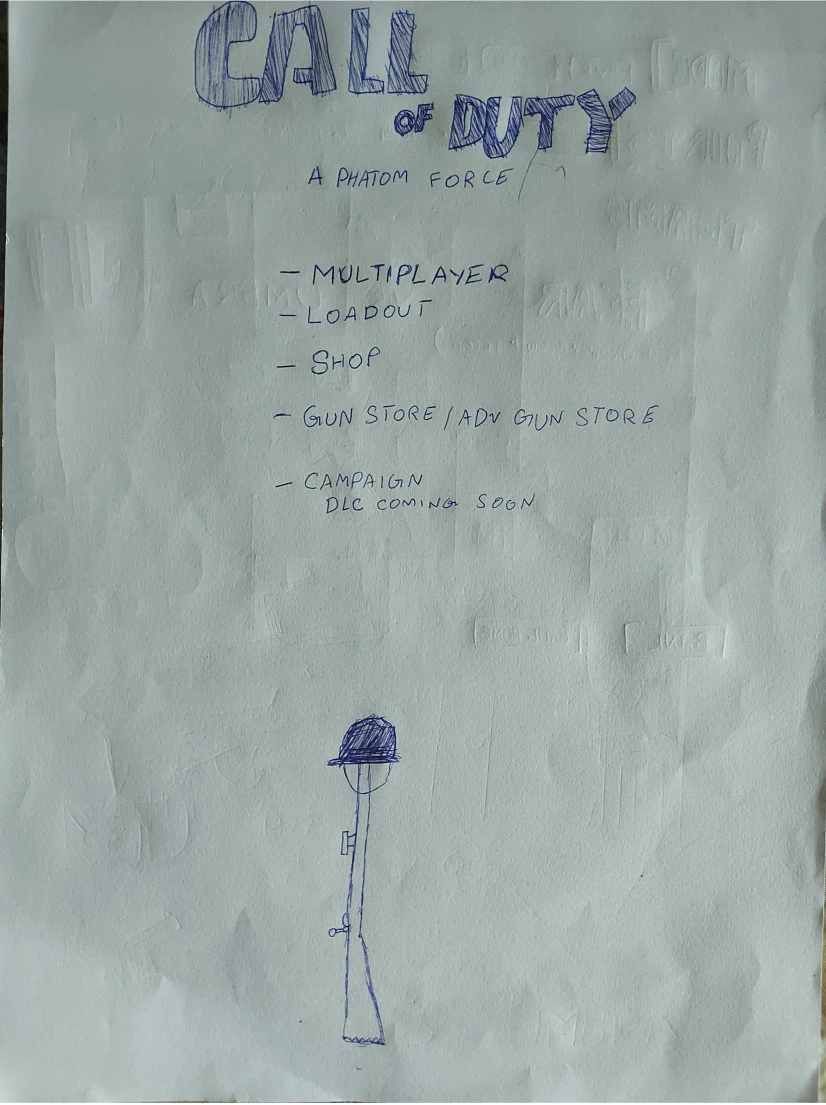 CALL
OF DUTY
A PHATOM FORCE
— MULTIPLAYER
— LOADOUT
— SHOP
— GUN STORE / ADV GUN STORE
— CAMPAIGN
DLC COMING SOON